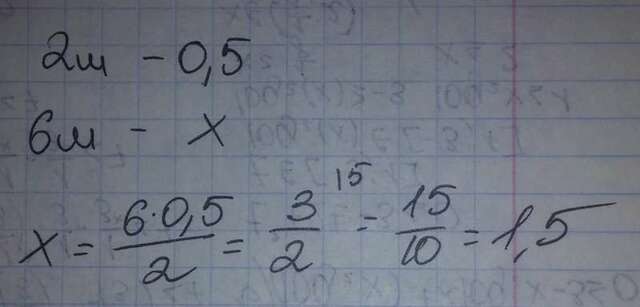 2ш - 0,5
6м - x
x = 6·0,5/2 = 3/2 15 = 15/10 = 1,5